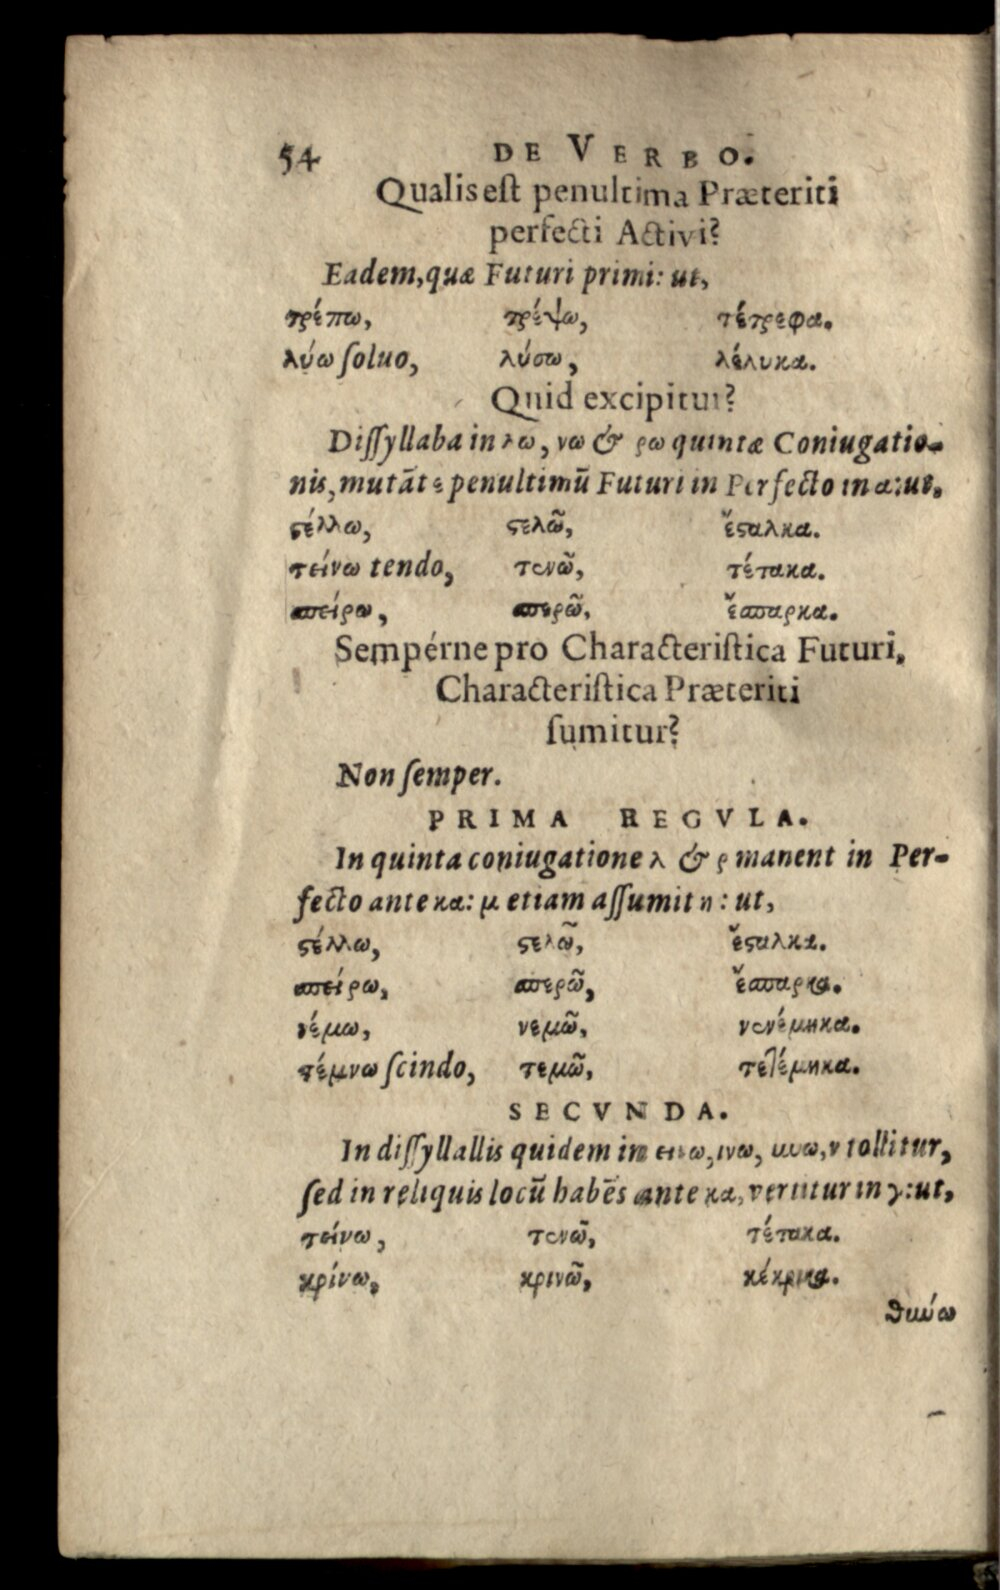 54 DE VERBO.
Qualis est penultima Præteriti
perfecti Activi?
Eadem, quæ Futuri primi: ut,
τρέπω, τρέψω, τέτρεφα.
λύω ſoluo, λύσω, λέλυκα.
Quid excipitur?
Diſſyllaba in λω, νω & ρω quintæ Coniugatio-
nis, mutāt ε penultimū Futuri in Perfecto in α: ut,
ϛέλλω, ϛελῶ, ἔϛαλκα.
τείνω tendo, τενῶ, τέτακα.
σπείρω, σπερῶ, ἔσπαρκα.
Sempérne pro Characteriſtica Futuri,
Characteriſtica Præteriti
ſumitur?
Non ſemper.
PRIMA REGVLA.
In quinta coniugatione λ & ρ manent in Per-
fecto ante κα: μ etiam aſſumit η: ut,
ϛέλλω, ϛελῶ, ἔϛαλκα.
σπείρω, σπερῶ, ἔσπαρκα.
νέμω, νεμῶ, νενέμηκα.
τέμνω ſcindo, τεμῶ, τετέμηκα.
SECVNDA.
In diſſyllallis quidem in εινω, ινω, υνω, ν tollitur,
ſed in reliquis locū habēs ante κα, vertitur in γ: ut,
τείνω, τενῶ, τέτακα.
κρίνω, κρινῶ, κέκρικα.